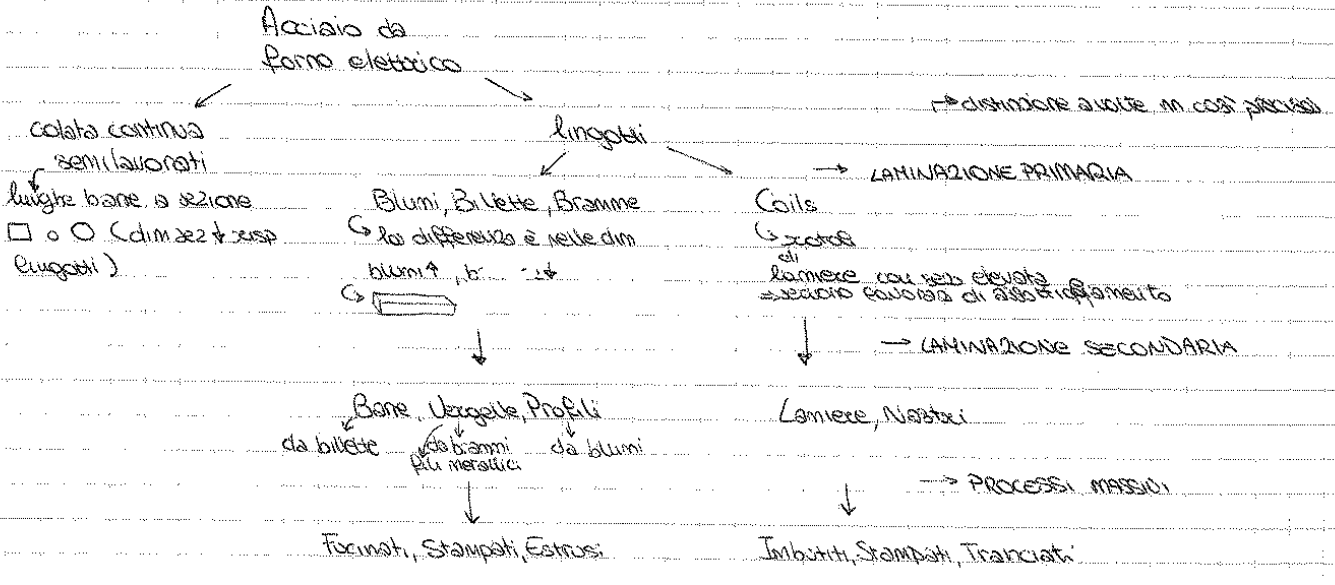 Acciaio da
forno elettrico
→ distinzione a volte nn così precisa
colata continua
semilavorati
lingotti
→ LAMINAZIONE PRIMARIA
lunghe barre a sezione
□ o ○ (dim sez ↓ risp
lingotti)
Blumi, Billette, Bramme
↳ la differenza è nelle dim
blumi ↑, b
Coils
↳ rotoli
di
lamiere con sez elevata
di assottigliamento
→ LAMINAZIONE SECONDARIA
Barre, Vergelle, Profili
da billette da brammi da blumi
fili metallici
Lamiere, Nastri
→ PROCESSI MASSIVI
Fucinati, Stampati, Estrusi
Imbutiti, Stampati, Tranciati